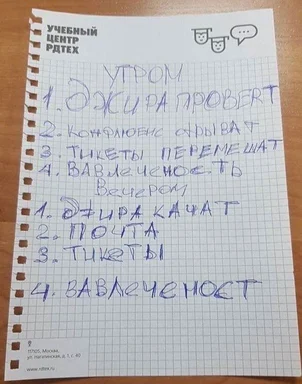 УЧЕБНЫЙ
ЦЕНТР
РДТЕХ
УТРОМ
1. ДЖИРА ПРОВЕРТ
2. КОНФЛЮЕНС ОТРЫВАТ
3. ТИКЕТЫ ПЕРЕМЕШАТ
4. ВАВЛЕЧЕНОСТЬ
Вечером
1. ДЖИРА КАЧАТ
2. ПОЧТА
3. ТИКЕТЫ
4. ВАВЛЕЧЕНОСТ
Москва,
www.rdtex.ru